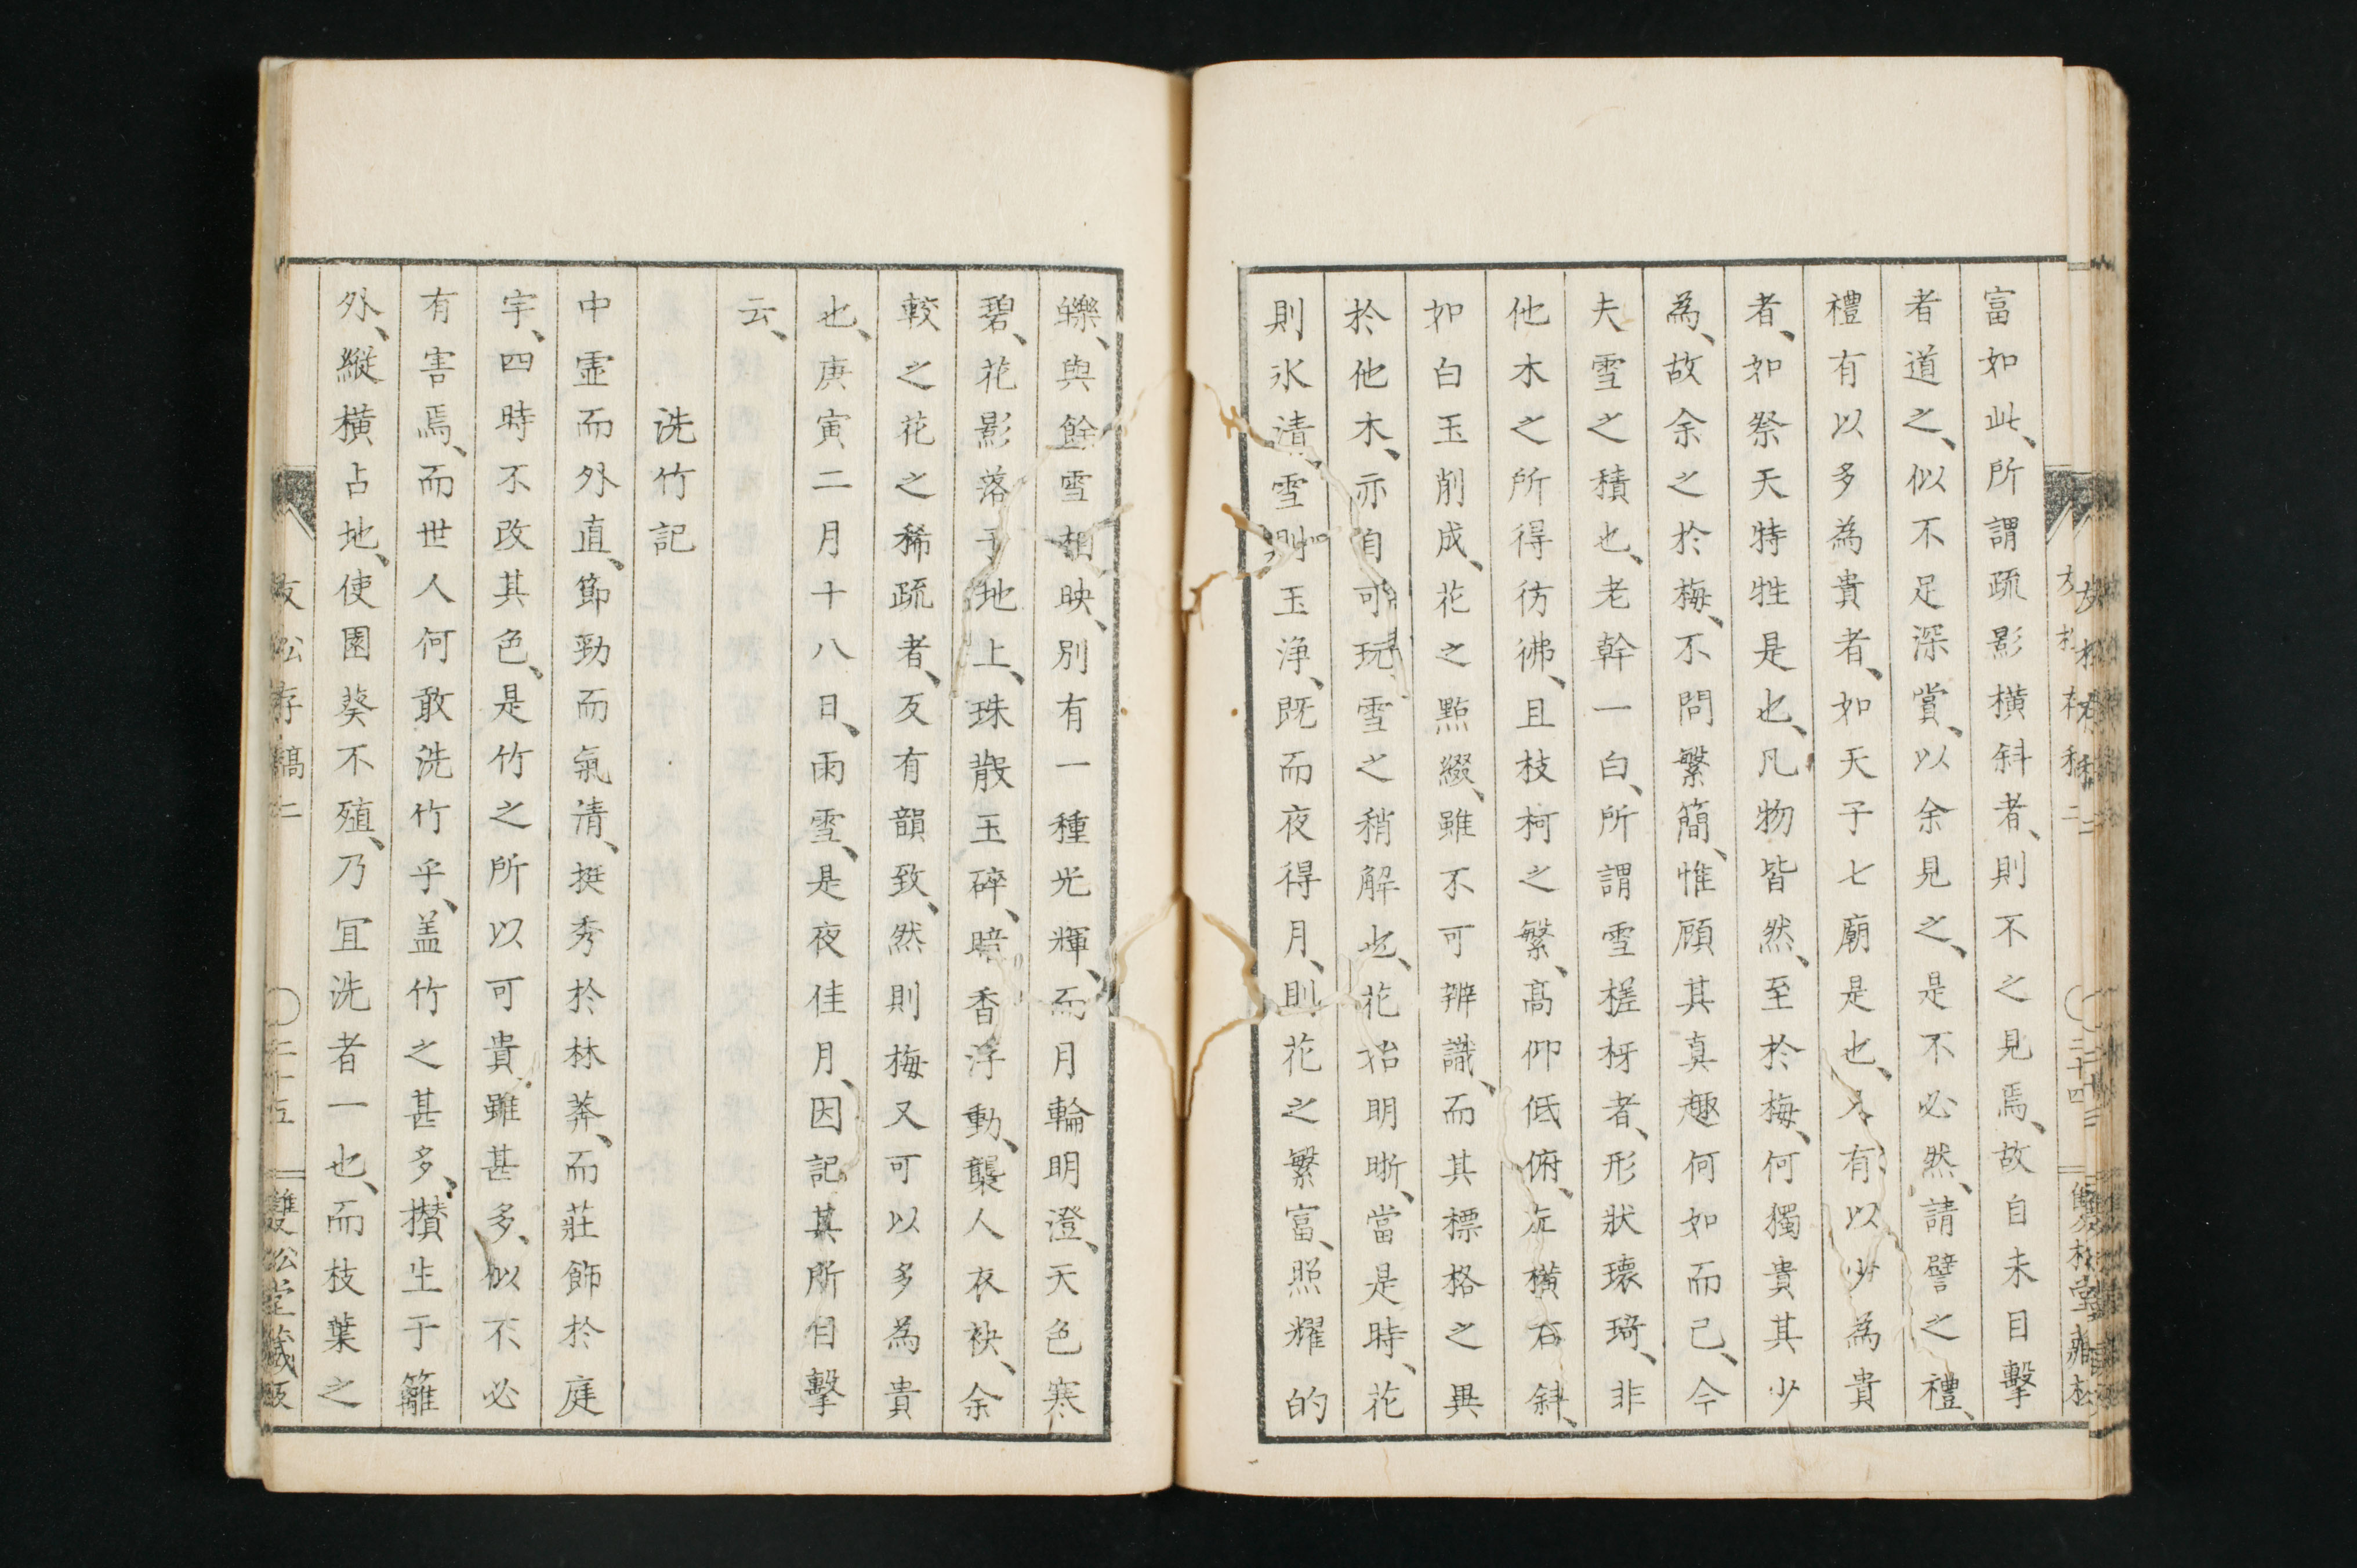 富如此、所謂疏影橫斜者、則不之見焉、故自未目擊
者道之、似不足深賞、以余見之、是不必然、請譬之禮、
禮有以多為貴者、如天子七廟是也、又有以少為貴
者、如祭天特牲是也、凡物皆然、至於梅、何獨貴其少
為、故余之於梅、不問繁簡、惟顧其真趣何如而已、今
夫雪之積也、老幹一白、所謂雪槎枒者、形狀瓌琦、非
他木之所得彷彿、且枝柯之繁、高仰低俯、左橫右斜、
如白玉削成、花之點綴、雖不可辨識、而其標格之異
於他木、亦自可玩、雪之稍解也、花始明晰、當是時、花
則氷清、雪則玉淨、既而夜得月、則花之繁富、照耀的
皪、與餘雪相映、別有一種光輝、而月輪明澄、天色寒
碧、花影落于地上、珠散玉碎、暗香浮動、襲人衣袂、余
較之花之稀疏者、反有韻致、然則梅又可以多為貴
也、庚寅二月十八日、雨雪、是夜佳月、因記其所目擊
云、
洗竹記
中虛而外直、節勁而氣清、挺秀於林莽、而莊飾於庭
宇、四時不改其色、是竹之所以可貴、雖甚多、似不必
有害焉、而世人何敢洗竹乎、盖竹之甚多、攅生于籬
外、縱橫占地、使園葵不殖、乃宜洗者一也、而枝葉之
友松存稿二
二十五
雙松堂藏版
二十四